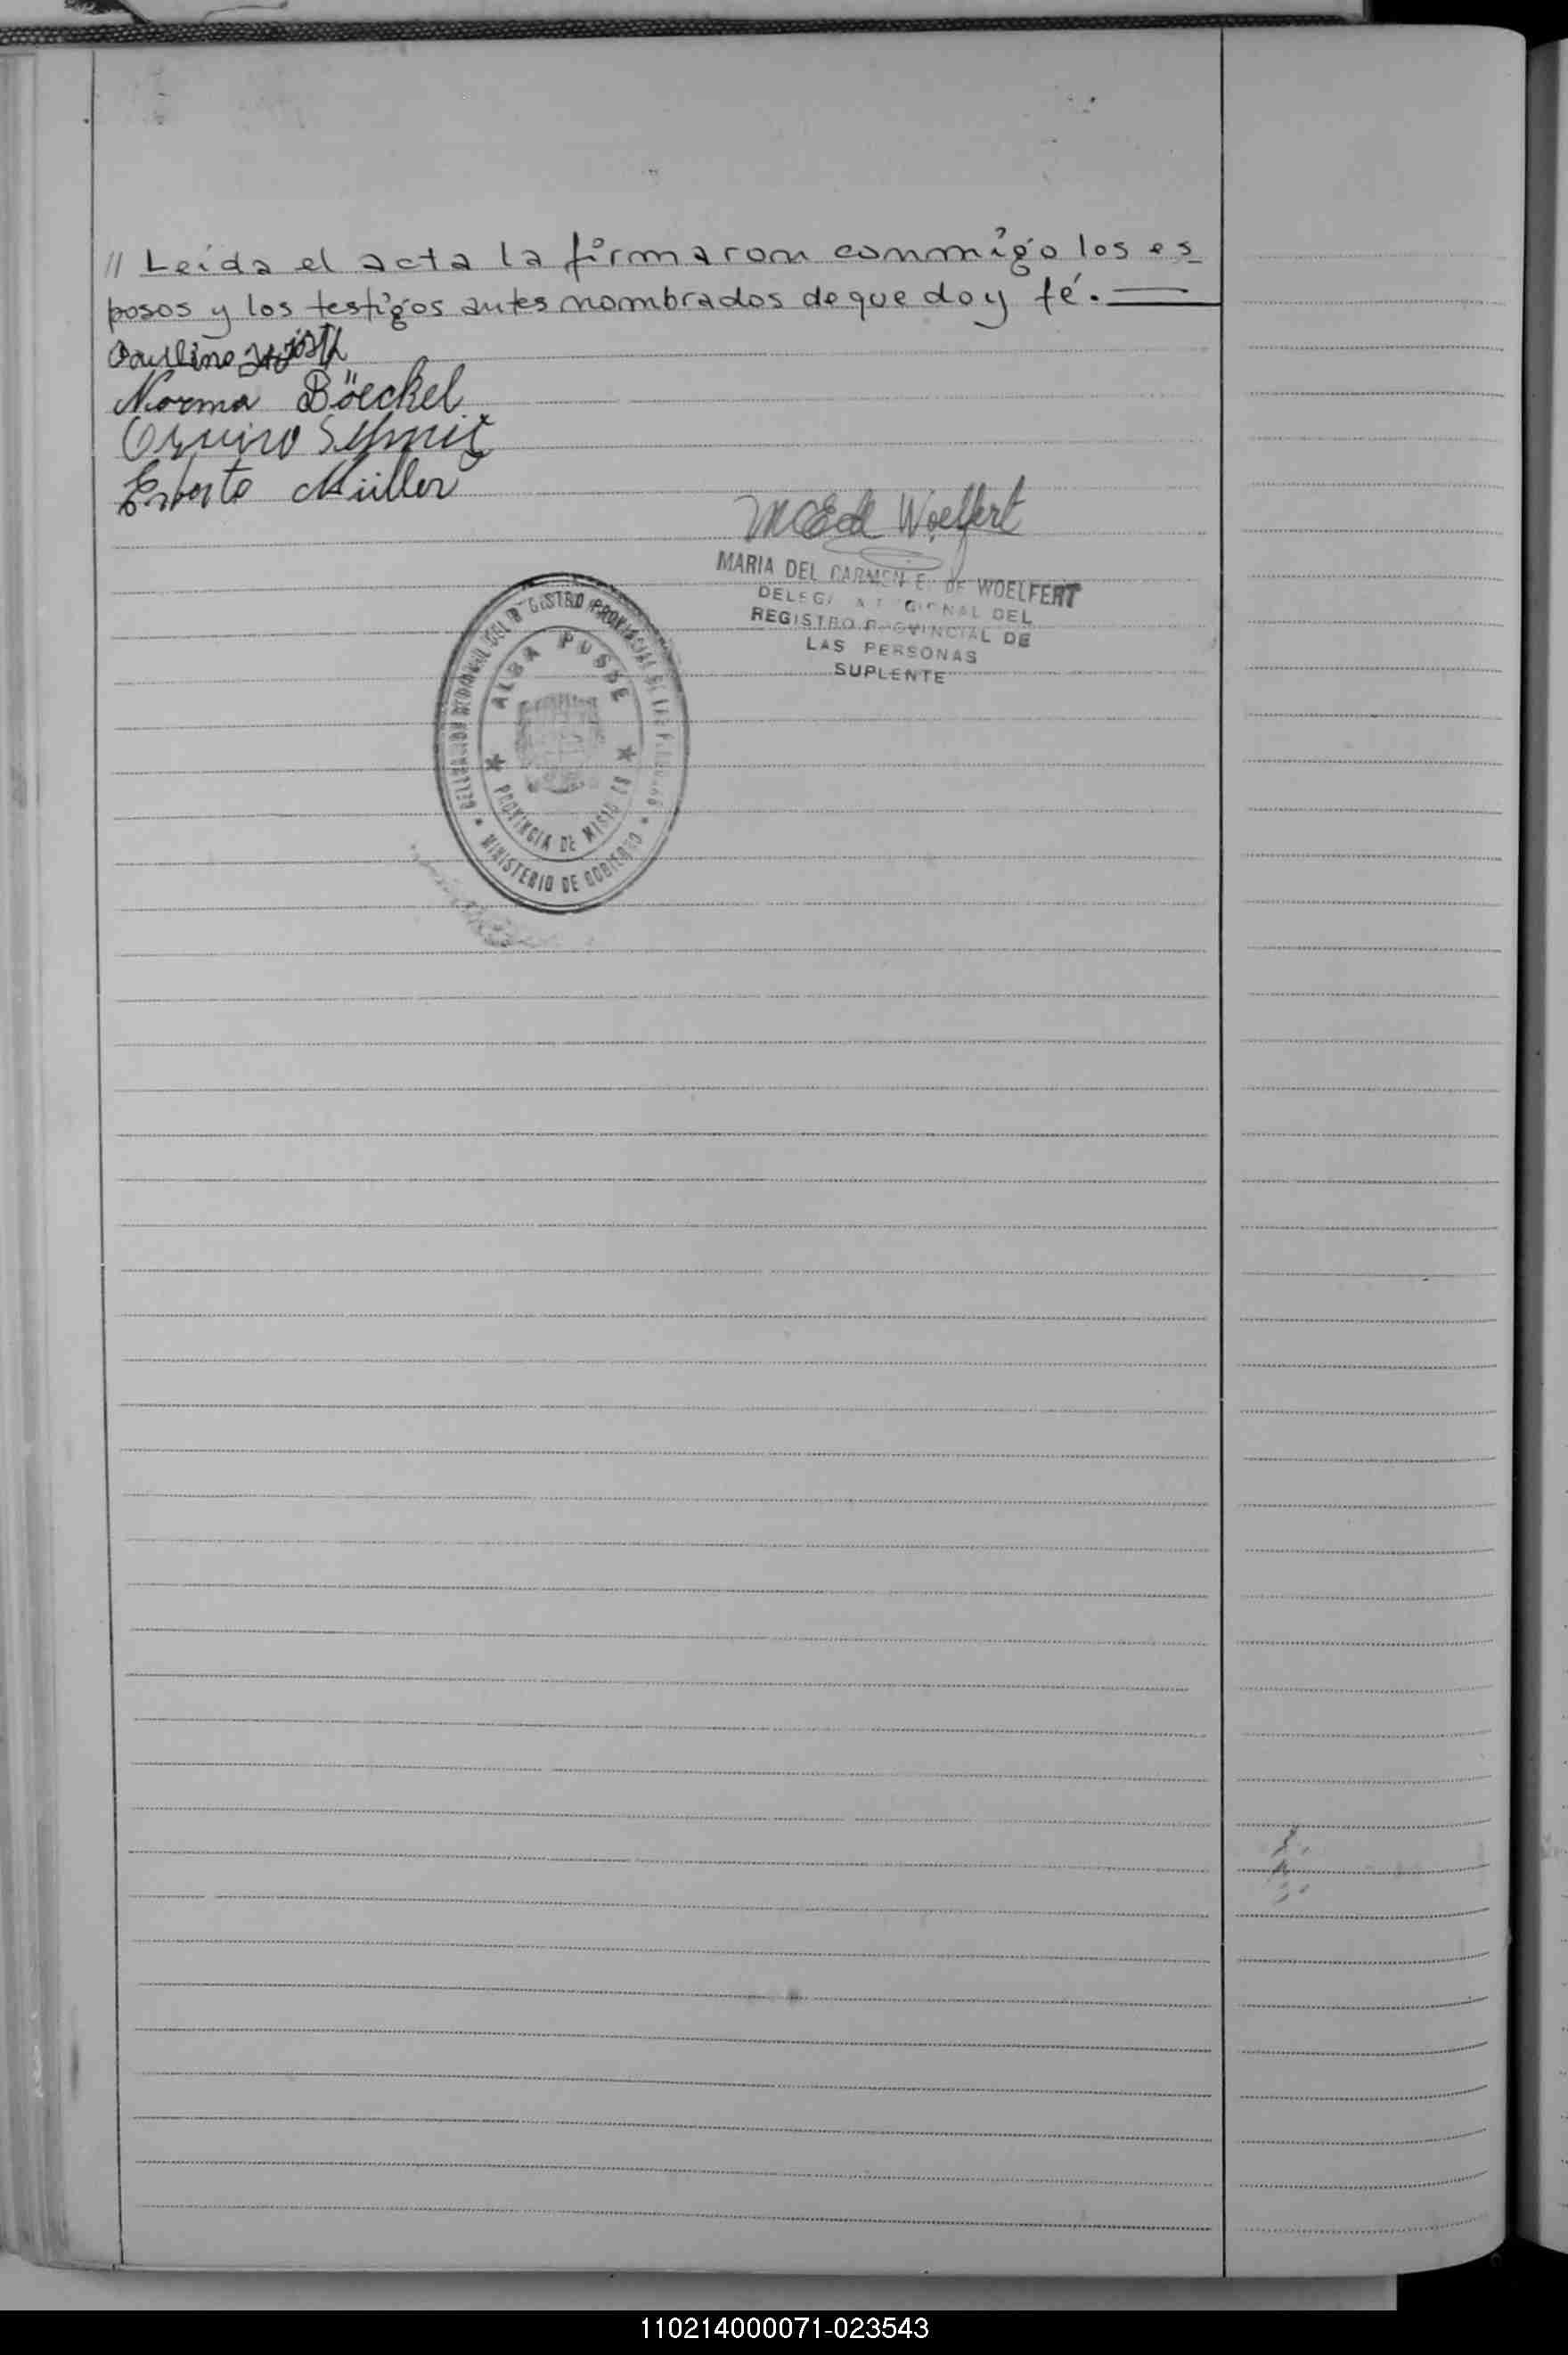 // Leída el acta la firmaron conmigo los es
posos y los testigos antes nombrados de que doy fé.
Paulino
Norma Böeckel
Erberto Müller
Woelfert
MARIA DEL CARMEN E. DE WOELFERT
DEL
REGISTRO PROVINCIAL DE
LAS PERSONAS
SUPLENTE
DELEGACION REGIONAL DEL REGISTRO PROVINCIAL DE LAS PERSONAS
ALBA POSSE
PROVINCIA DE MISIONES
* MINISTERIO DE GOBIERNO *
110214000071-023543